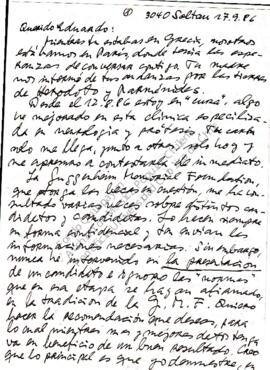 ① 3040 Soltau 17.9.86
Querido Eduardo:
Mientras tu estabas en Grecia, nosotros
estábamos en París, donde tenía las espe-
ranzas de conversar contigo. Tu madre
nos informó de tus andanzas por las tierras
de Herodoto y Parménides.
Desde el 12.8.86 estoy en "cura", algo
he mejorado en esta clínica especiliza-
da en neurología y prótesis. Tu carta
sólo me llega, junto a otras, sólo hoy y
me apresuro a contestarla de inmediato.
La Guggenheim Memorial Foundation,
que otorga las becas en cuestión, me ha con-
sultado varias veces sobre distintos can-
didatos y candidatas. Lo hacen siempre
en forma confidencial y te envían las
informaciones necesarias. Sin embargo,
nunca he intervenido en la presentación
de un candidato e ignoro las "normas"
que en esa etapa se hayan afianzado,
en la tradición de la G.M.F. Quiero
hacer la recomendación que deseas, para
lo cual mientras más y mejores datos tenga
va en beneficio de un buen resultado. Creo
que lo principal es que yo demuestre, en